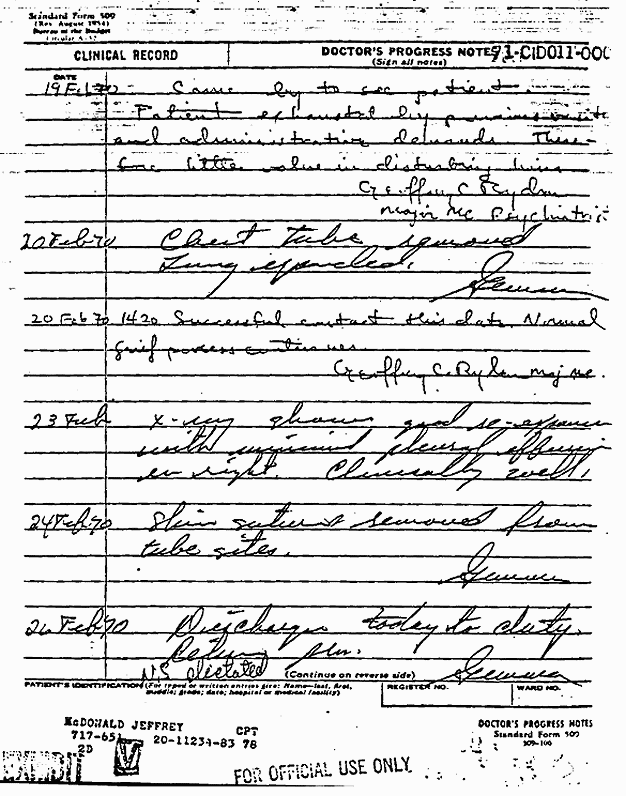 Standard Form 509
(Rev. August 1954)
Bureau of the Budget
Circular A-32
CLINICAL RECORD
DOCTOR'S PROGRESS NOTES
(Sign all notes)
91-CID011-000
DATE
19 Feb 70 Came by to see patient.
Patient exhausted by previous visits
and administrative demands. There-
fore little value in disturbing him
Geoffrey C Ryder
Major MC Psychiatrist
20 Feb 70 Chest tube removed
Lung expanded.
20 Feb 70 1420 Successful contact this date. Normal
grief process continues.
Geoffrey C. Ryder Maj MC.
23 Feb X-ray shows good re-expansion
with minimal pleural effusion
on right. Clinically well.
24 Feb 70 Skin sutures removed from
tube sites.
26 Feb 70 Discharge today to duty.
Return prn.
NS dictated
(Continue on reverse side)
PATIENT'S IDENTIFICATION (For typed or written entries give: Name—last, first,
middle; grade; date; hospital or medical facility)
REGISTER NO.
WARD NO.
McDONALD JEFFREY CPT
717-651 20-11234-83 78
2D
DOCTOR'S PROGRESS NOTES
Standard Form 509
509-106
EXHIBIT
FOR OFFICIAL USE ONLY